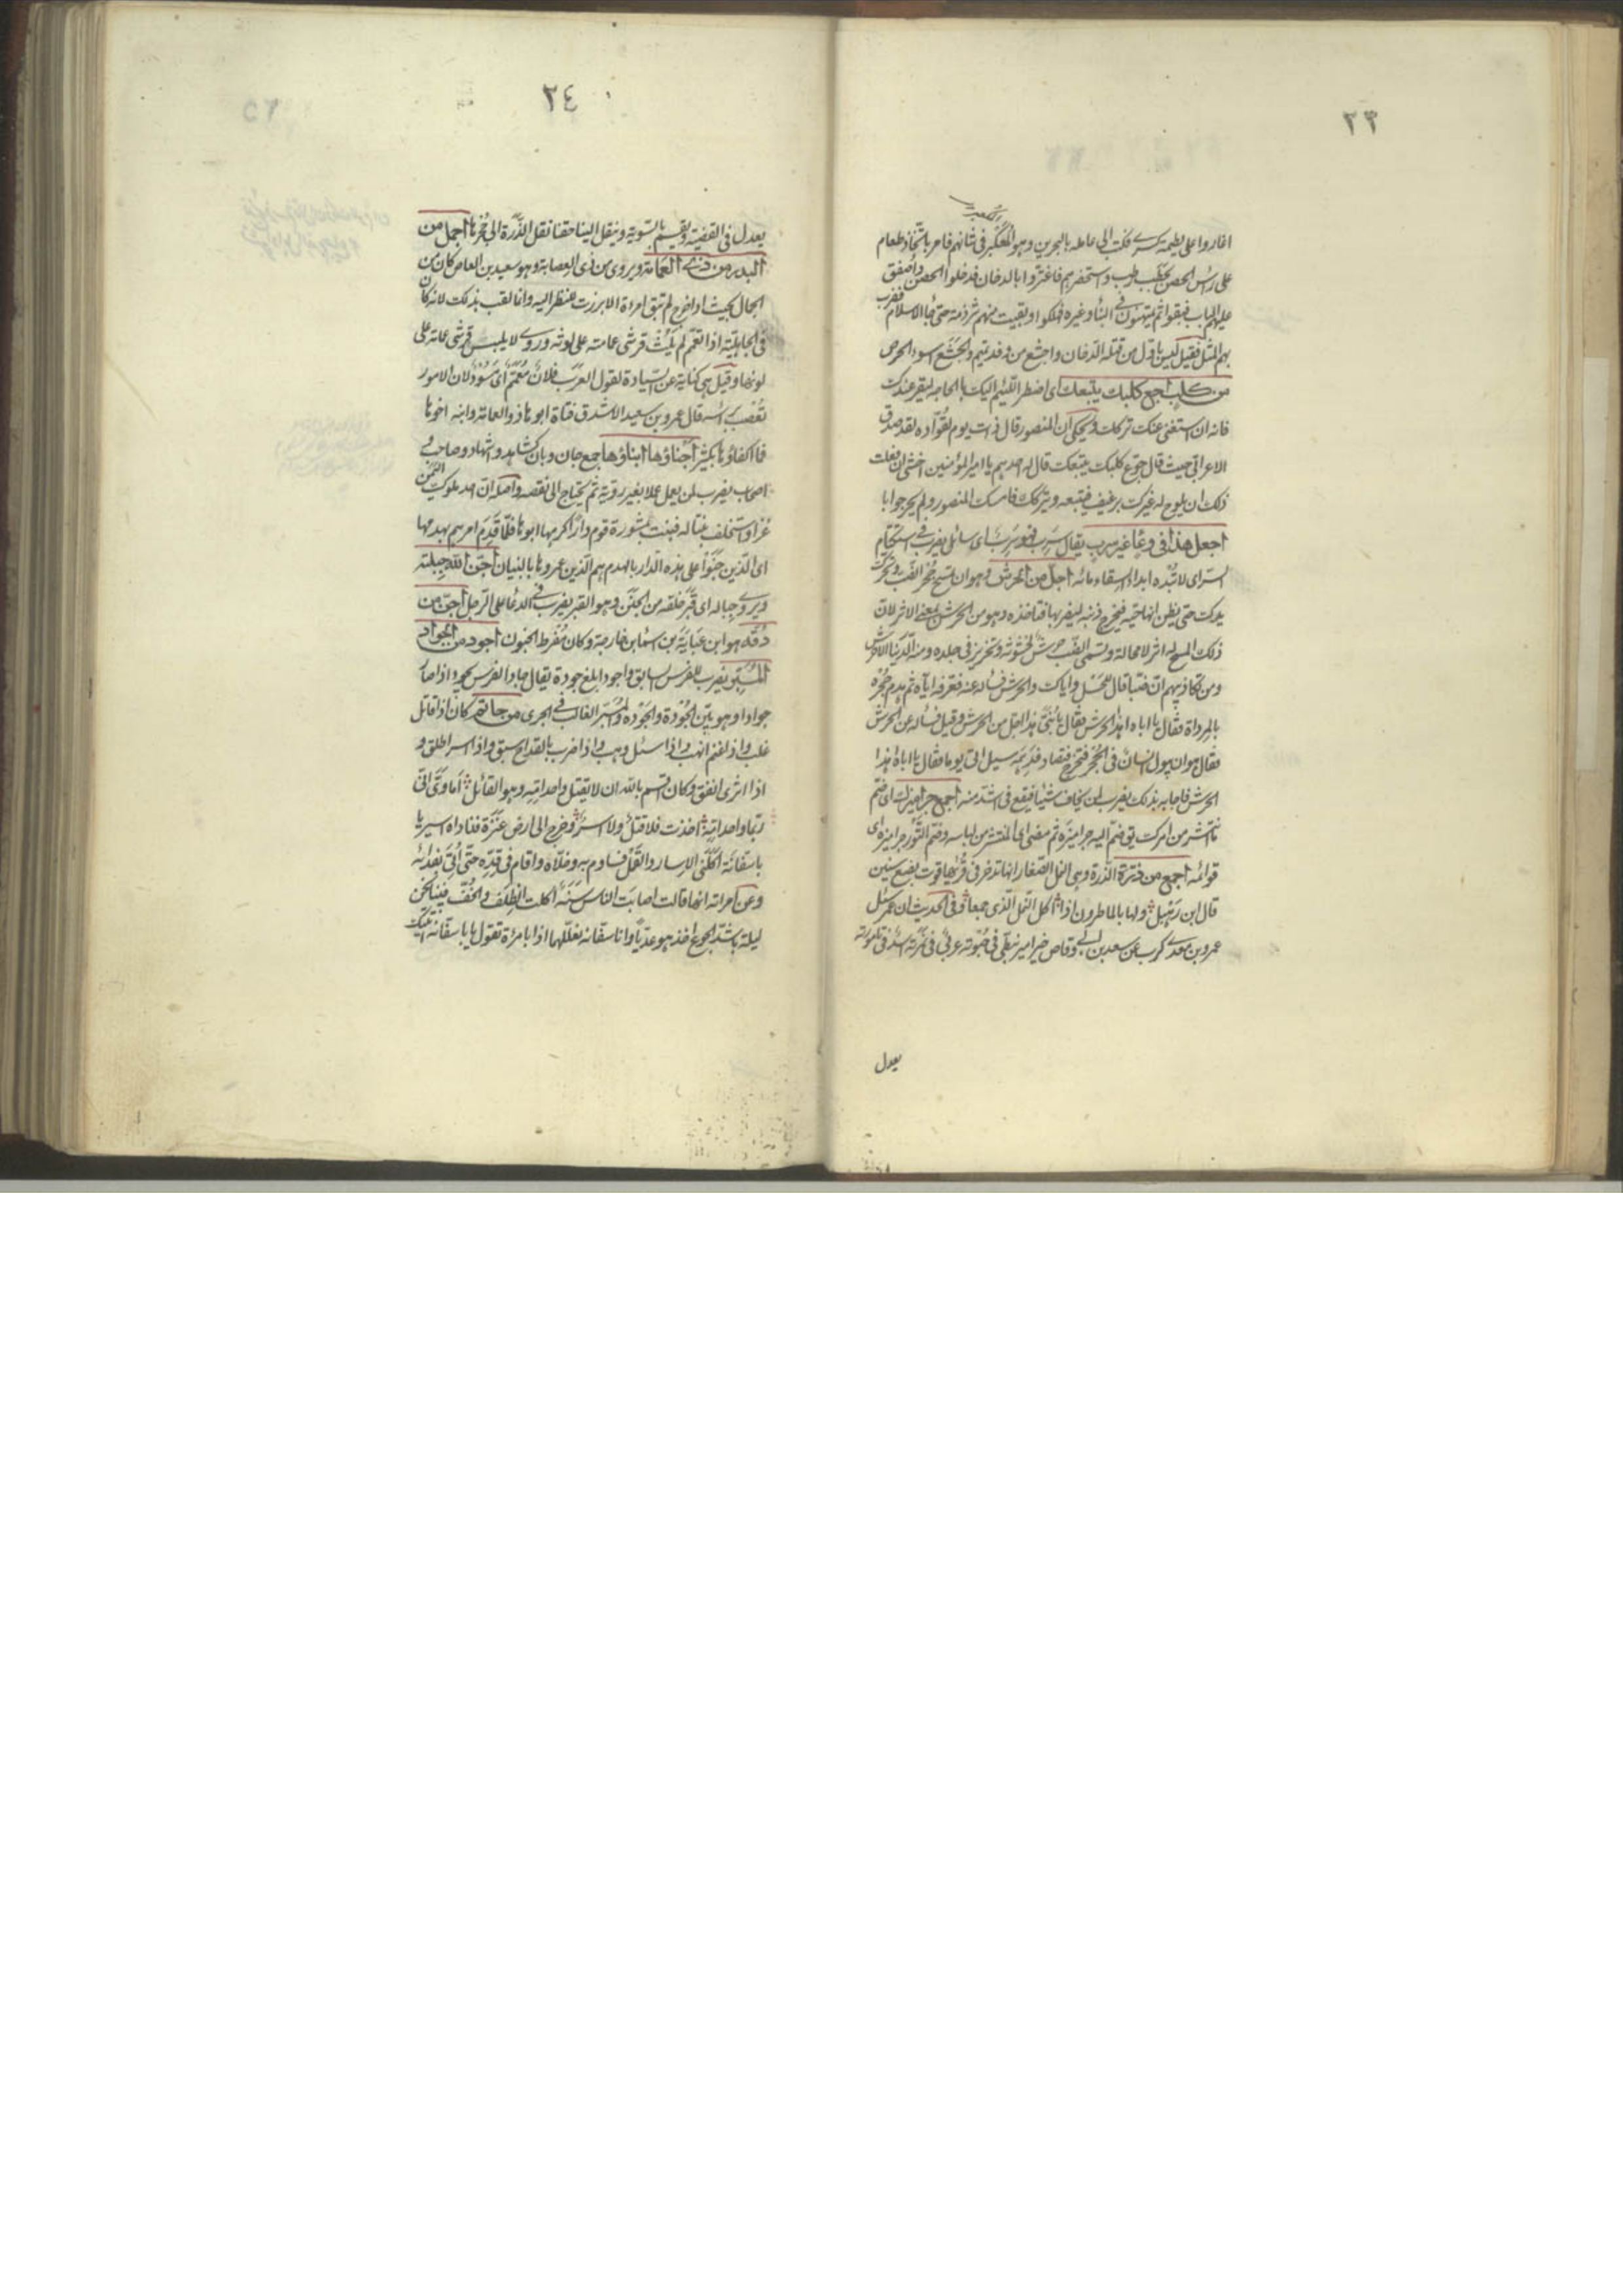 ٢٣
اغاروا على لطيمة كسرى فكتب الى عامله بالبحرين وهو المكعبر فى شانهم فامر باتخاذ طعام
على راس الحصن بحطب رطب واستحضرهم فاغتروا بالدخان فدخلوا الحصن واصفق
عليهم الباب فبقوا ثم يمتهنون فى البناء وغيره فهلكوا وبقيت منهم شرذمة حتى جاء الاسلام فضرب
بهم المثل فقيل ليس باول من قتله الدخان واجشع من وفد تميم والجشع اسوء الحرص
من كلب اجع كلبك يتبعك اى اضطر اللئيم اليك بالحاجه ليقر عندك
فانه ان استغنى عنك تركك ويحكى ان المنصور قال ذات يوم لقواده لقد صدق
الاعرابى حيث قال جوع كلبك يتبعك قال له احدهم يا امير المؤمنين اخشى ان فعلت
ذلك ان يلوح له غيرك برغيف فيتبعه ويتركك فامسك المنصور ولم يحر جوابا
اجعل هذا فى وعاء غير سرب يقال سرب فهو سرب اى سائل يضرب فى استكتام
السر اى لا تبده ابداء السقاء مائه اجل من الحرش وهو ان تمسح جحر الضب وتحرك
يدك حتى يظن انها حية فيخرج ذنبه ليضربها فتاخذه وهو من الحرش بمعنى الاثر لان
ذلك المسح له اثر لا محالة وتسمى الضب حرش لخشونته وتحزيز فى جلده ومنه الدينار الاحرش
ومن تكاذيبهم ان ضبا قال للحسل واياك والحرش فساله عنه فعرفه اياه ثم هدم جحره
بالمرداة فقال يا اباه اهذا الحرش فقال يا بنى هذا اجل من الحرش وقيل فساله عن الحرش
فقال هو ان يبول انسان فى الجحر فتخرج فتصاد فدهمه سيل اتى يوما فقال يا اباه هذا
الحرش فاجابه بذلك يضرب لمن يخاف شيئا فيقع فى اشد منه اجمع جراميزك اى ضم
ما انتشر من امرك يق ضم اليه جراميزه ثم مضى اى المنتشر من لباسه وضم الثور جراميزه اى
قوائمه اجمع من ذرة الذرة وهى النمل الصغار انها تدخر فى قراها قوت بضع سنين
قال ابن رهيل ولها بالماطرون اذا اكل النمل الذى جمعا وفى الحديث ان عمر سئل
عمرو بن معدى كرب عن سعد بن ابى وقاص خير امير نبطى فى حبوته عربى فى نمرته اسد فى تامورته
يعدل
٢٤
يعدل فى القضية ويقسم بالسوية وينقل الينا حقنا نقل الذرة الى جحرها اجمل من
البدر من ذى العمامة ويروى من ذى العصابة وهو سعيد بن العاص كان من
الجمال بحيث اذا خرج لم تبق امرءة الا برزت للنظر اليه وانما لقب بذلك لانه كان
فى الجاهلية اذا اعتم لم يلث قرشى عمامته على لوثه وروى لا يلبس قرشى عمامة على
لونها وقيل هى كناية عن السيادة لقول العرب فلان معمم اى مسود لان الامور
تعصب براسه قال عمرو بن سعيد الاشدق فتاة ابوها ذو العمامة وابنه اخوها
فما اكفاؤها بكثير اجناؤها ابناؤها جمع جان وبان كشاهد واشهاد وصاحب و
اصحاب يضرب لمن يعمل عملا بغير روية ثم يحتاج الى نقضه واصله ان احد ملوك اليمن
غزا واستخلف بنتا له فبنت بمشورة قوم دارا كرهها ابوها فلما قدم امرهم بهدمها
اى الذين جنوا على هذه الدار بالهدم هم الذين عمروها بالبنيان اجن الله جبلته
ويروى جباله اى قبر خلقه من الجنن وهو القبر يضرب فى الدعاء على الرجل اجن من
دقه هو ابن عباية بن اسماء بن خارجة وكان مفرط الجنون اجود من الجواد
المبر يضرب للفرس السابق واجود ابلغ جودة يقال جاد الفرس يجود اذا صار
جوادا وهو بين الجودة والجوده والمبر الغالب فى الجرى من حاتم كان اذا قاتل
غلب واذا غنم انهب واذا سئل وهب واذا ضرب بالقداح سبق واذا اسر اطلق و
اذا اثرى انفق وكان اقسم بالله ان لا يقتل واحد امه وهو القائل اماوى انى
رب واحد امه اخذت فلا قتل ولا اسر وخرج الى ارض عنزة فناداه اسير يا
با سفانة اكلنى الاسار والقمل فساوم به وخلاه واقام فى قده حتى اتى بفدائه
وعن امراته انها قالت اصابت الناس سنة اكلت الظلف والخف فبينا نحن
ليلة باشد الجوع اخذ هو عديا وانا سفانة نعللهما اذا بامرءة تقول يا با سفانة اتيتك